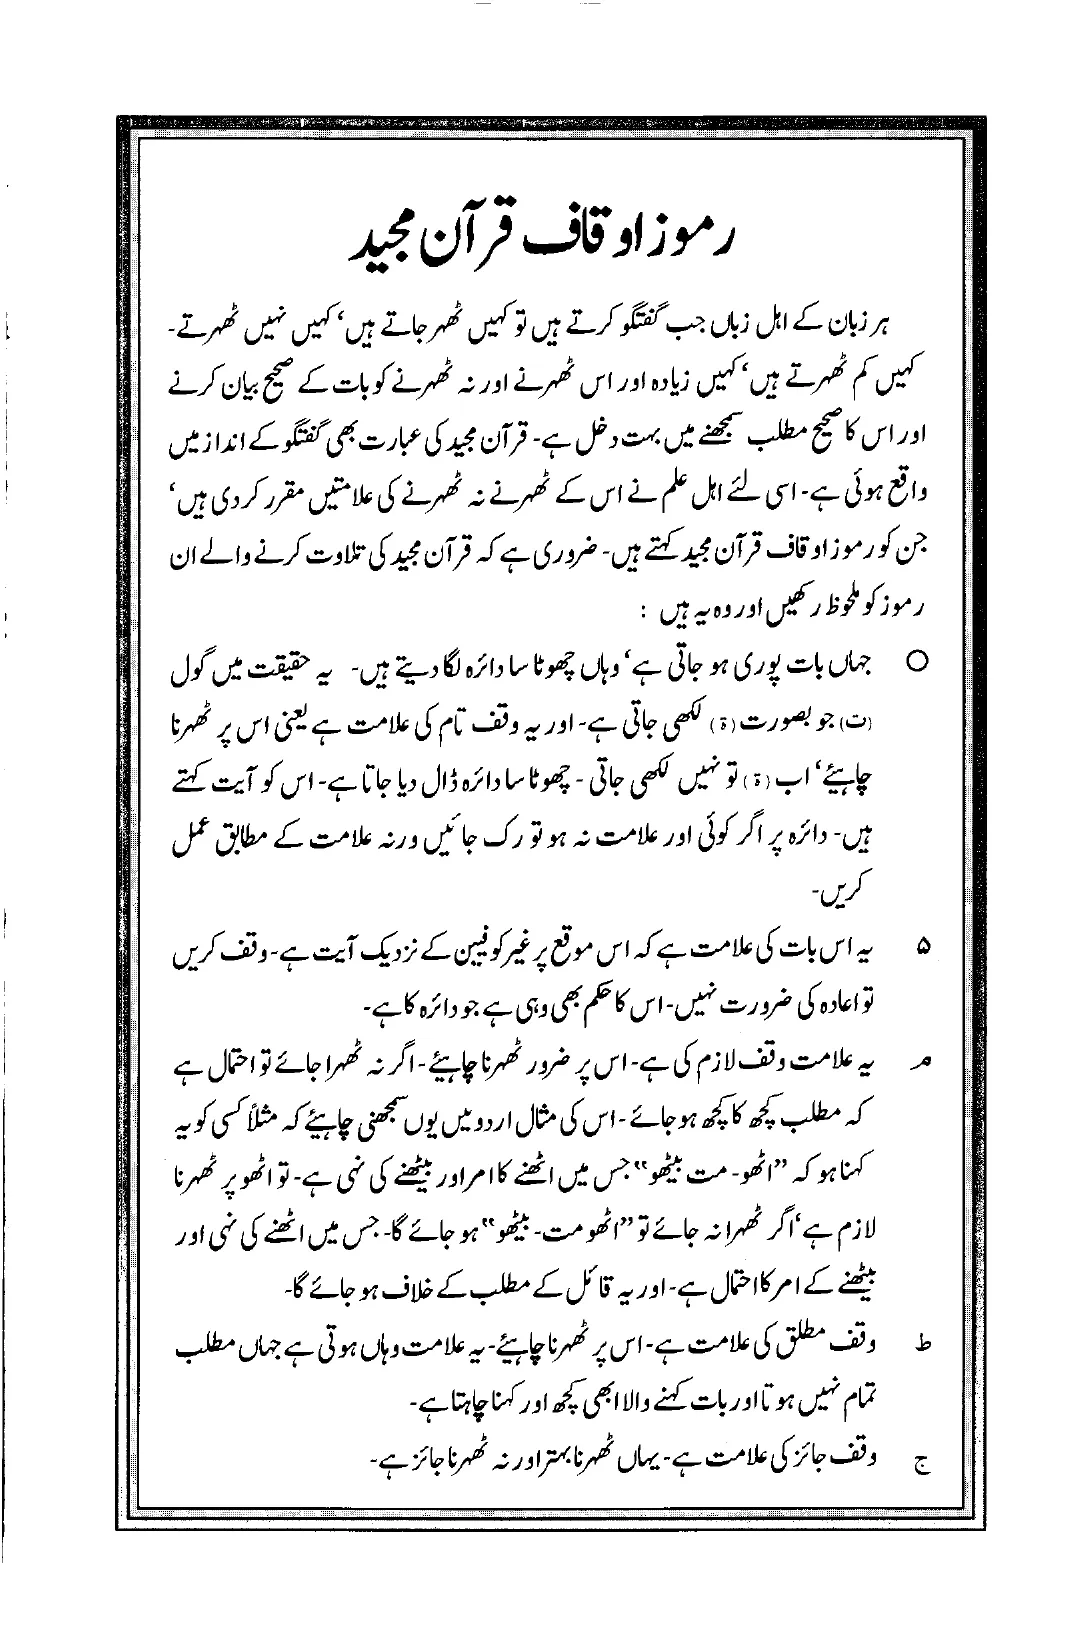 رموز اوقاف قرآن مجید
ہر زبان کے اہل زباں جب گفتگو کرتے ہیں تو کہیں ٹھہر جاتے ہیں‘ کہیں نہیں ٹھہرتے-
کہیں کم ٹھہرتے ہیں‘ کہیں زیادہ اور اس ٹھہرنے اور نہ ٹھہرنے کو بات کے صحیح بیان کرنے
اور اس کا صحیح مطلب سمجھنے میں بہت دخل ہے- قرآن مجید کی عبارت بھی گفتگو کے انداز میں
واقع ہوئی ہے- اسی لئے اہل علم نے اس کے ٹھہرنے نہ ٹھہرنے کی علامتیں مقرر کر دی ہیں‘
جن کو رموز اوقاف قرآن مجید کہتے ہیں- ضروری ہے کہ قرآن مجید کی تلاوت کرنے والے ان
رموز کو ملحوظ رکھیں اور وہ یہ ہیں :
○ جہاں بات پوری ہو جاتی ہے‘ وہاں چھوٹا سا دائرہ لگا دیتے ہیں- یہ حقیقت میں گول
(ت) جو بصورت (ۃ) لکھی جاتی ہے- اور یہ وقف تام کی علامت ہے یعنی اس پر ٹھہرنا
چاہیئے‘ اب (ۃ) تو نہیں لکھی جاتی - چھوٹا سا دائرہ ڈال دیا جاتا ہے- اس کو آیت کہتے
ہیں- دائرہ پر اگر کوئی اور علامت نہ ہو تو رک جائیں ورنہ علامت کے مطابق عمل
کریں-
۵ یہ اس بات کی علامت ہے کہ اس موقع پر غیر کوفیین کے نزدیک آیت ہے- وقف کریں
تو اعادہ کی ضرورت نہیں- اس کا حکم بھی وہی ہے جو دائرہ کا ہے-
مـ یہ علامت وقف لازم کی ہے- اس پر ضرور ٹھہرنا چاہیئے- اگر نہ ٹھہرا جائے تو احتمال ہے
کہ مطلب کچھ کا کچھ ہو جائے- اس کی مثال اردو میں یوں سمجھنی چاہیئے کہ مثلاً کسی کو یہ
کہنا ہو کہ ”اٹھو- مت بیٹھو“ جس میں اٹھنے کا امر اور بیٹھنے کی نہی ہے- تو اٹھو پر ٹھہرنا
لازم ہے‘ اگر ٹھہرا نہ جائے تو ”اٹھو مت- بیٹھو“ ہو جائے گا- جس میں اٹھنے کی نہی اور
بیٹھنے کے امر کا احتمال ہے- اور یہ قائل کے مطلب کے خلاف ہو جائے گا-
ط وقف مطلق کی علامت ہے- اس پر ٹھہرنا چاہیئے- یہ علامت وہاں ہوتی ہے جہاں مطلب
تمام نہیں ہوتا اور بات کہنے والا ابھی کچھ اور کہنا چاہتا ہے-
ج وقف جائز کی علامت ہے- یہاں ٹھہرنا بہتر اور نہ ٹھہرنا جائز ہے-